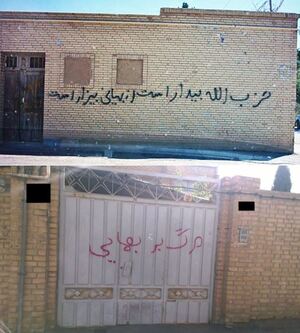 حزب الله بیدار است از بهای بیزار است
مرگ بر بهایی